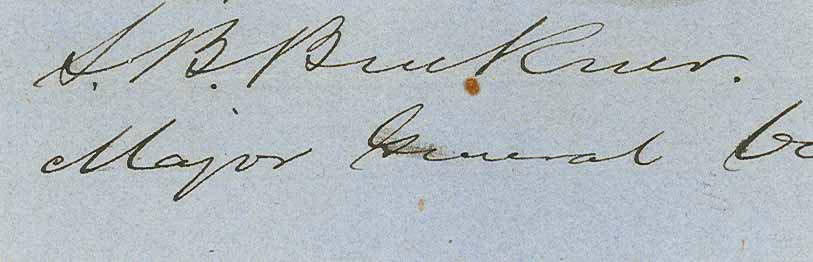 S. B. Buckner.
Major General